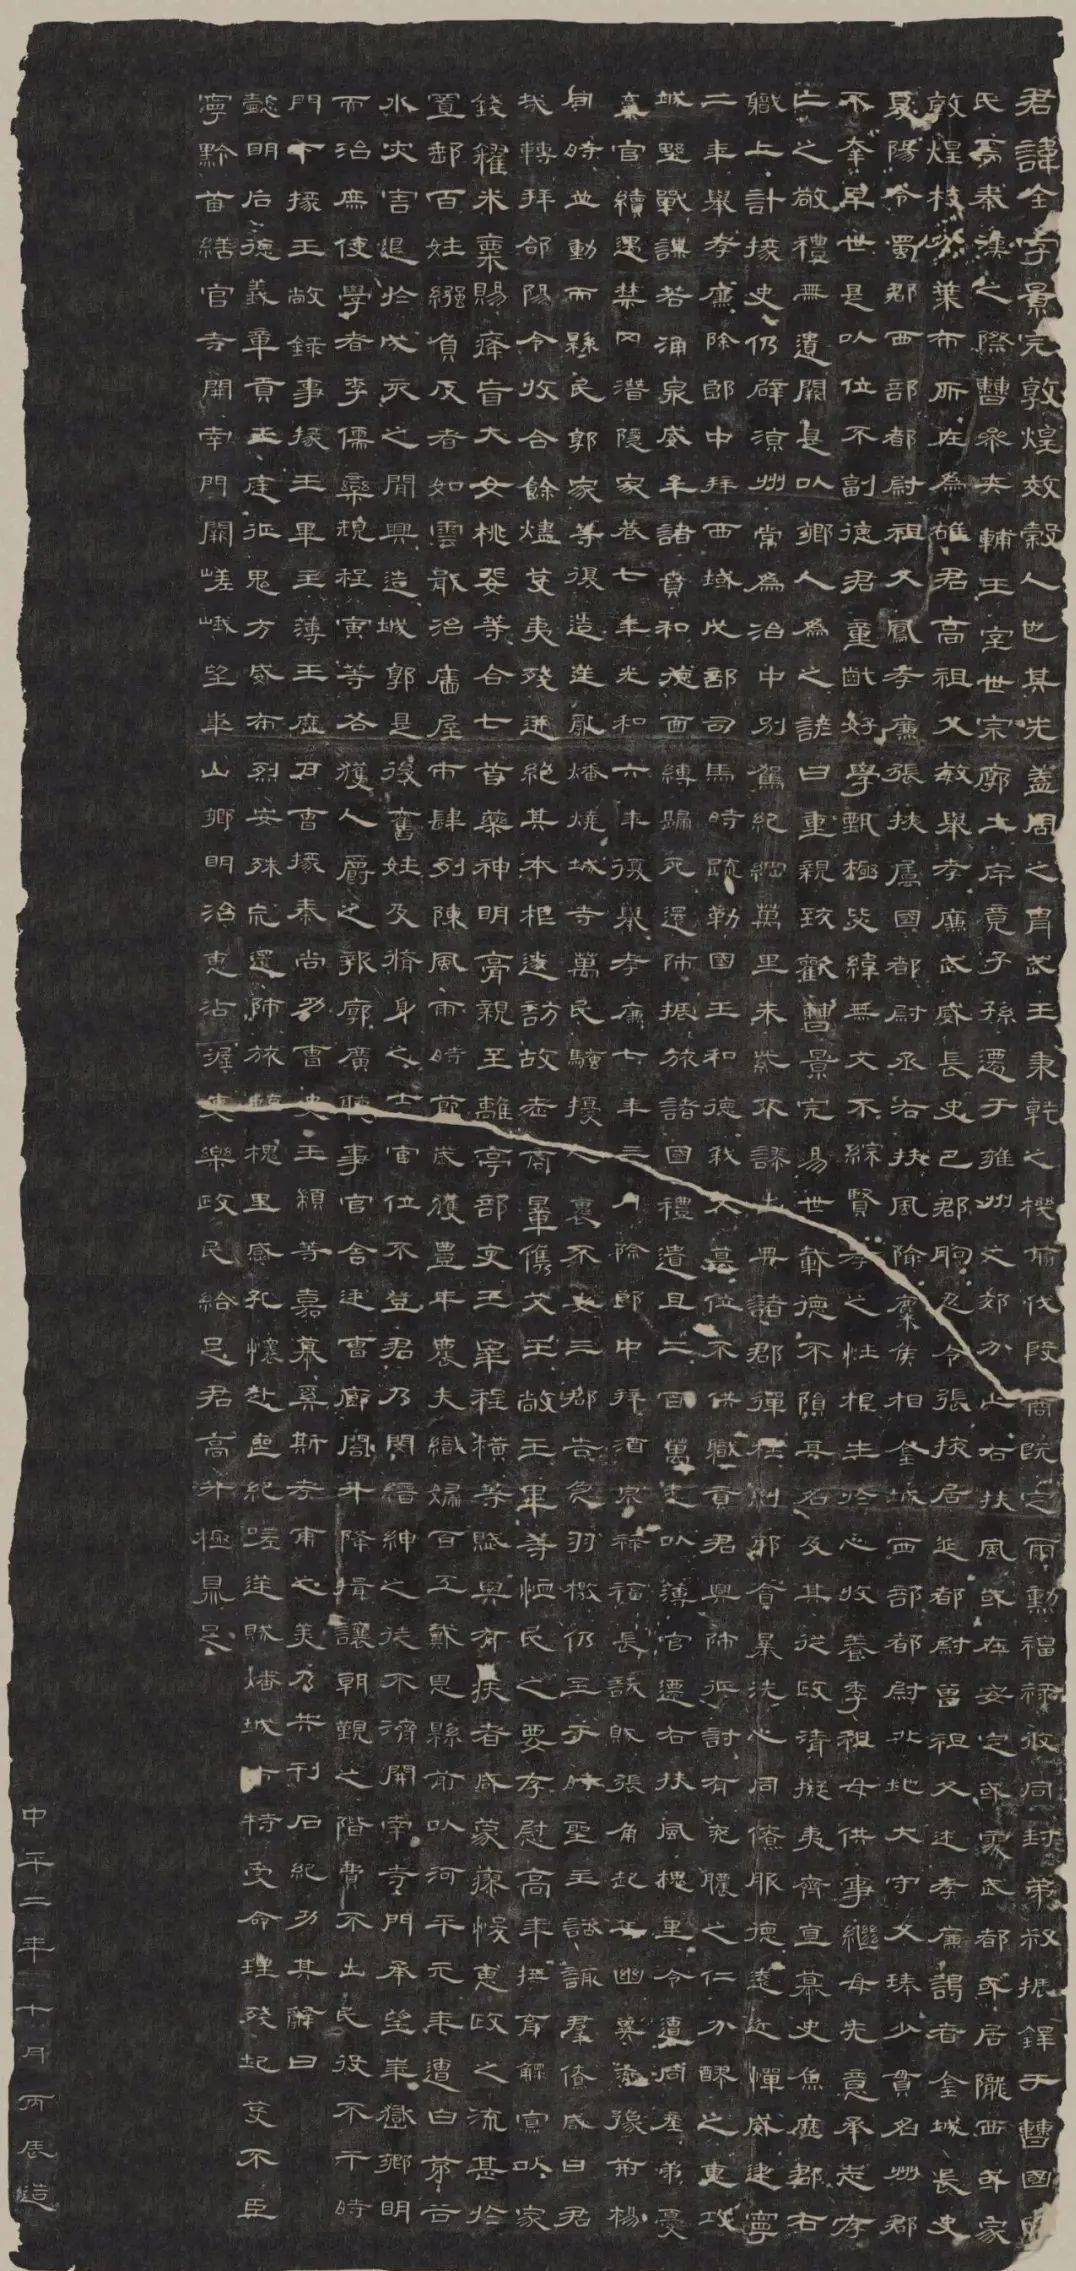 君諱全字景完敦煌效穀人也其先蓋周之胄武王秉乾之機翦伐殷商既定爾勳福祿攸同封弟叔振鐸于曹國因
氏焉秦漢之際曹參夾輔王室世宗廓土斥竟子孫遷于雍州之郊分止右扶風或在安定或處武都或居隴西或家
敦煌枝分葉布所在為雄君高祖父敏舉孝廉武威長史巴郡朐忍令張掖居延都尉曾祖父述孝廉謁者金城長史
夏陽令蜀郡西部都尉祖父鳳孝廉張掖屬國都尉丞右扶風隃麋侯相金城西部都尉北地大守父琫少貫名州郡
不幸早世是以位不副德君童齔好學甄極毖緯無文不綜賢孝之性根生於心收養季祖母供事繼母先意承志存
亡之敬禮無遺闕是以鄉人為之諺曰重親致歡曹景完易世載德不隕其名及其從政清擬夷齊直慕史魚歷郡右
職上計掾史仍辟涼州常為治中別駕紀綱萬里朱紫不謬出典諸郡彈枉糾邪貪暴洗心同僚服德遠近憚威建寧
二年舉孝廉除郎中拜西域戊部司馬時疏勒國王和德弒父篡位不供職貢君興師征討有兖膿之仁分醪之惠攻
城野戰謀若涌泉威牟諸賁和德面縛歸死還師振旅諸國禮遺且二百萬悉以薄官遷右扶風槐里令遭同產弟憂
棄官續遇禁网潛隱家巷七年光和六年復舉孝廉七年三月除郎中拜酒泉祿福長訞賊張角起兵幽冀兗豫荊楊
同時並動而縣民郭家等復造逆亂燔燒城寺萬民騷擾人裹不安三郡告急羽檄仍至于時聖主諮諏羣僚咸曰君
哉轉拜郃陽令收合餘燼芟夷殘迸絕其本根遂訪故老商量儁艾王敞王畢等恤民之要存慰高年撫育鰥寡以家
錢糴米粟賜癃盲大女桃婓等合七首藥神明膏親至離亭部吏王宰程橫等賦與有疾者咸蒙瘳悛惠政之流甚於
置郵百姓繦負反者如雲戢治廧屋市肆列陳風雨時節歲獲豐年農夫織婦百工戴恩縣前以河平元年遭白茅谷
水灾害退於戌亥之間興造城郭是後舊姓及脩身之士官位不登君乃閔縉紳之徒不濟開南寺門承望華嶽鄉明
而治庶使學者李儒欒規程寅等各獲人爵之報廓廣聽事官舍廷曹廊閤升降揖讓朝覲之階費不出民役不干時
門下掾王敞錄事掾王畢主薄王歷戶曹掾秦尚功曹史王顓等嘉慕奚斯考甫之美乃共刊石紀功其辭曰
懿明后德義章貢王庭征鬼方威布烈安殊巟還師旅臨槐里感孔懷赴喪紀嗟逆賊燔城市特受命理殘圮芟不臣
寧黔首繕官寺開南門闕嵯峨望華山鄉明治惠沾渥吏樂政民給足君高升極鼎足
中平二年十月丙辰造